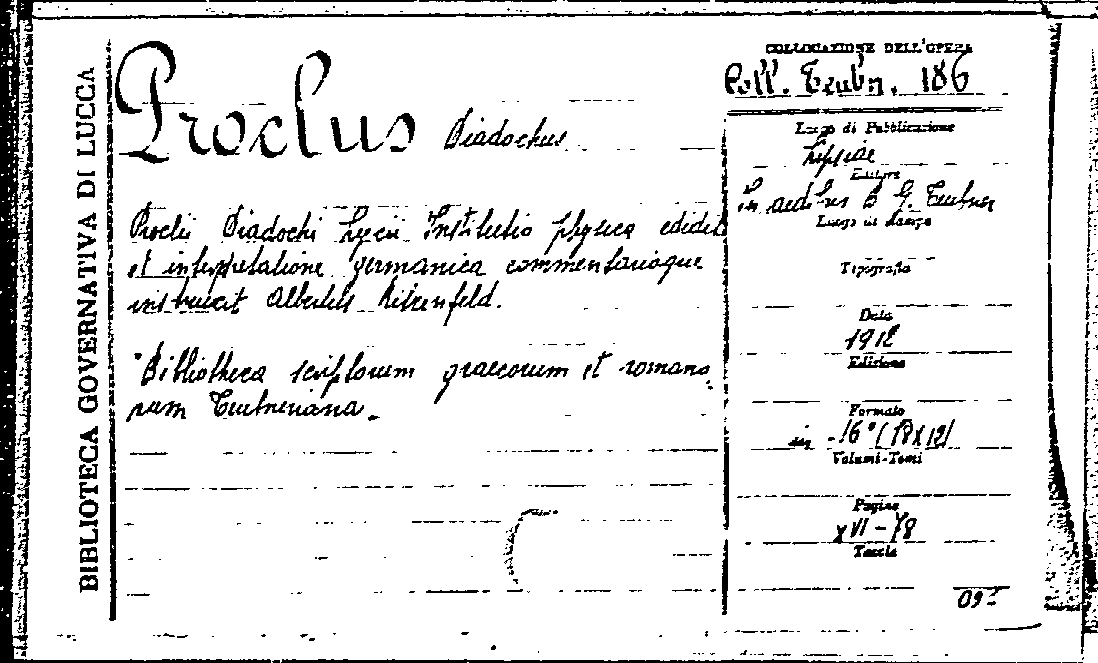 BIBLIOTECA GOVERNATIVA DI LUCCA
Proclus Diadochus
Procli Diadochi Lycii Institutio physica edidit
et interpretatione germanica commentarioque
instruxit Albertus Ritzenfeld.
"Bibliotheca scriptorum graecorum et romano
rum Teubneriana.
COLLOCAZIONE DELL'OPERA
Coll. Teubn. 186
Luogo di Pubblicazione
Lipsiae
Editore
In aedibus B. G. Teubner
Luogo di stampa
Tipografia
Data
1912
Edizione
Formato
in -16° (18x12)
Volumi-Tomi
Pagine
XVI-78
Tavole